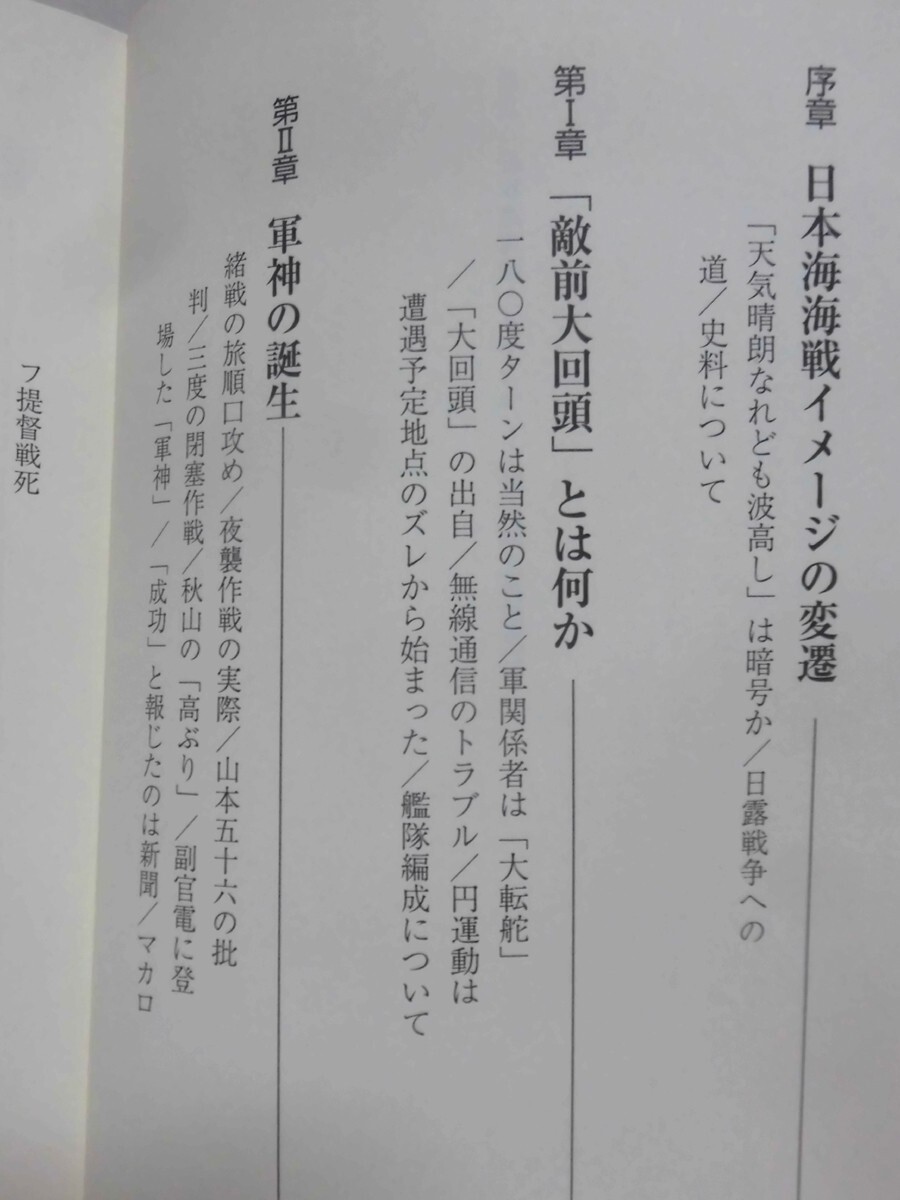 序章 日本海海戦イメージの変遷
「天気晴朗なれども波高し」は暗号か/日露戦争への
道/史料について
第Ⅰ章 「敵前大回頭」とは何か
一八〇度ターンは当然のこと/軍関係者は「大転舵」
/「大回頭」の出自/無線通信のトラブル/円運動は
遭遇予定地点のズレから始まった/艦隊編成について
第Ⅱ章 軍神の誕生
緒戦の旅順口攻め/夜襲作戦の実際/山本五十六の批
判/三度の閉塞作戦/秋山の「高ぶり」/副官電に登
場した「軍神」/「成功」と報じたのは新聞/マカロ
フ提督戦死